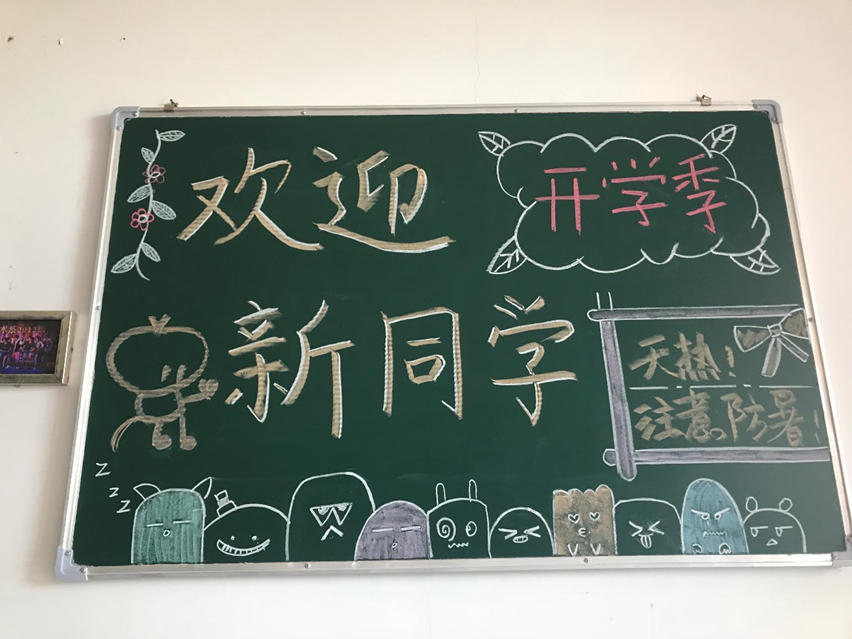 欢迎
开学季
新同学
天热!
注意防暑!
z
z
z